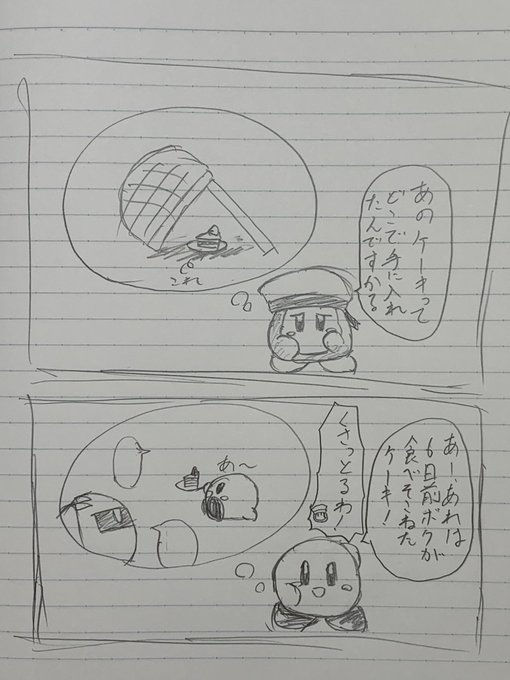 あのケーキって
どこで手に入れ
たんですかる
これ
あーあれは
6日前ボクが
食べそこねた
ケーキ!
くさっとるわ!
あ〜